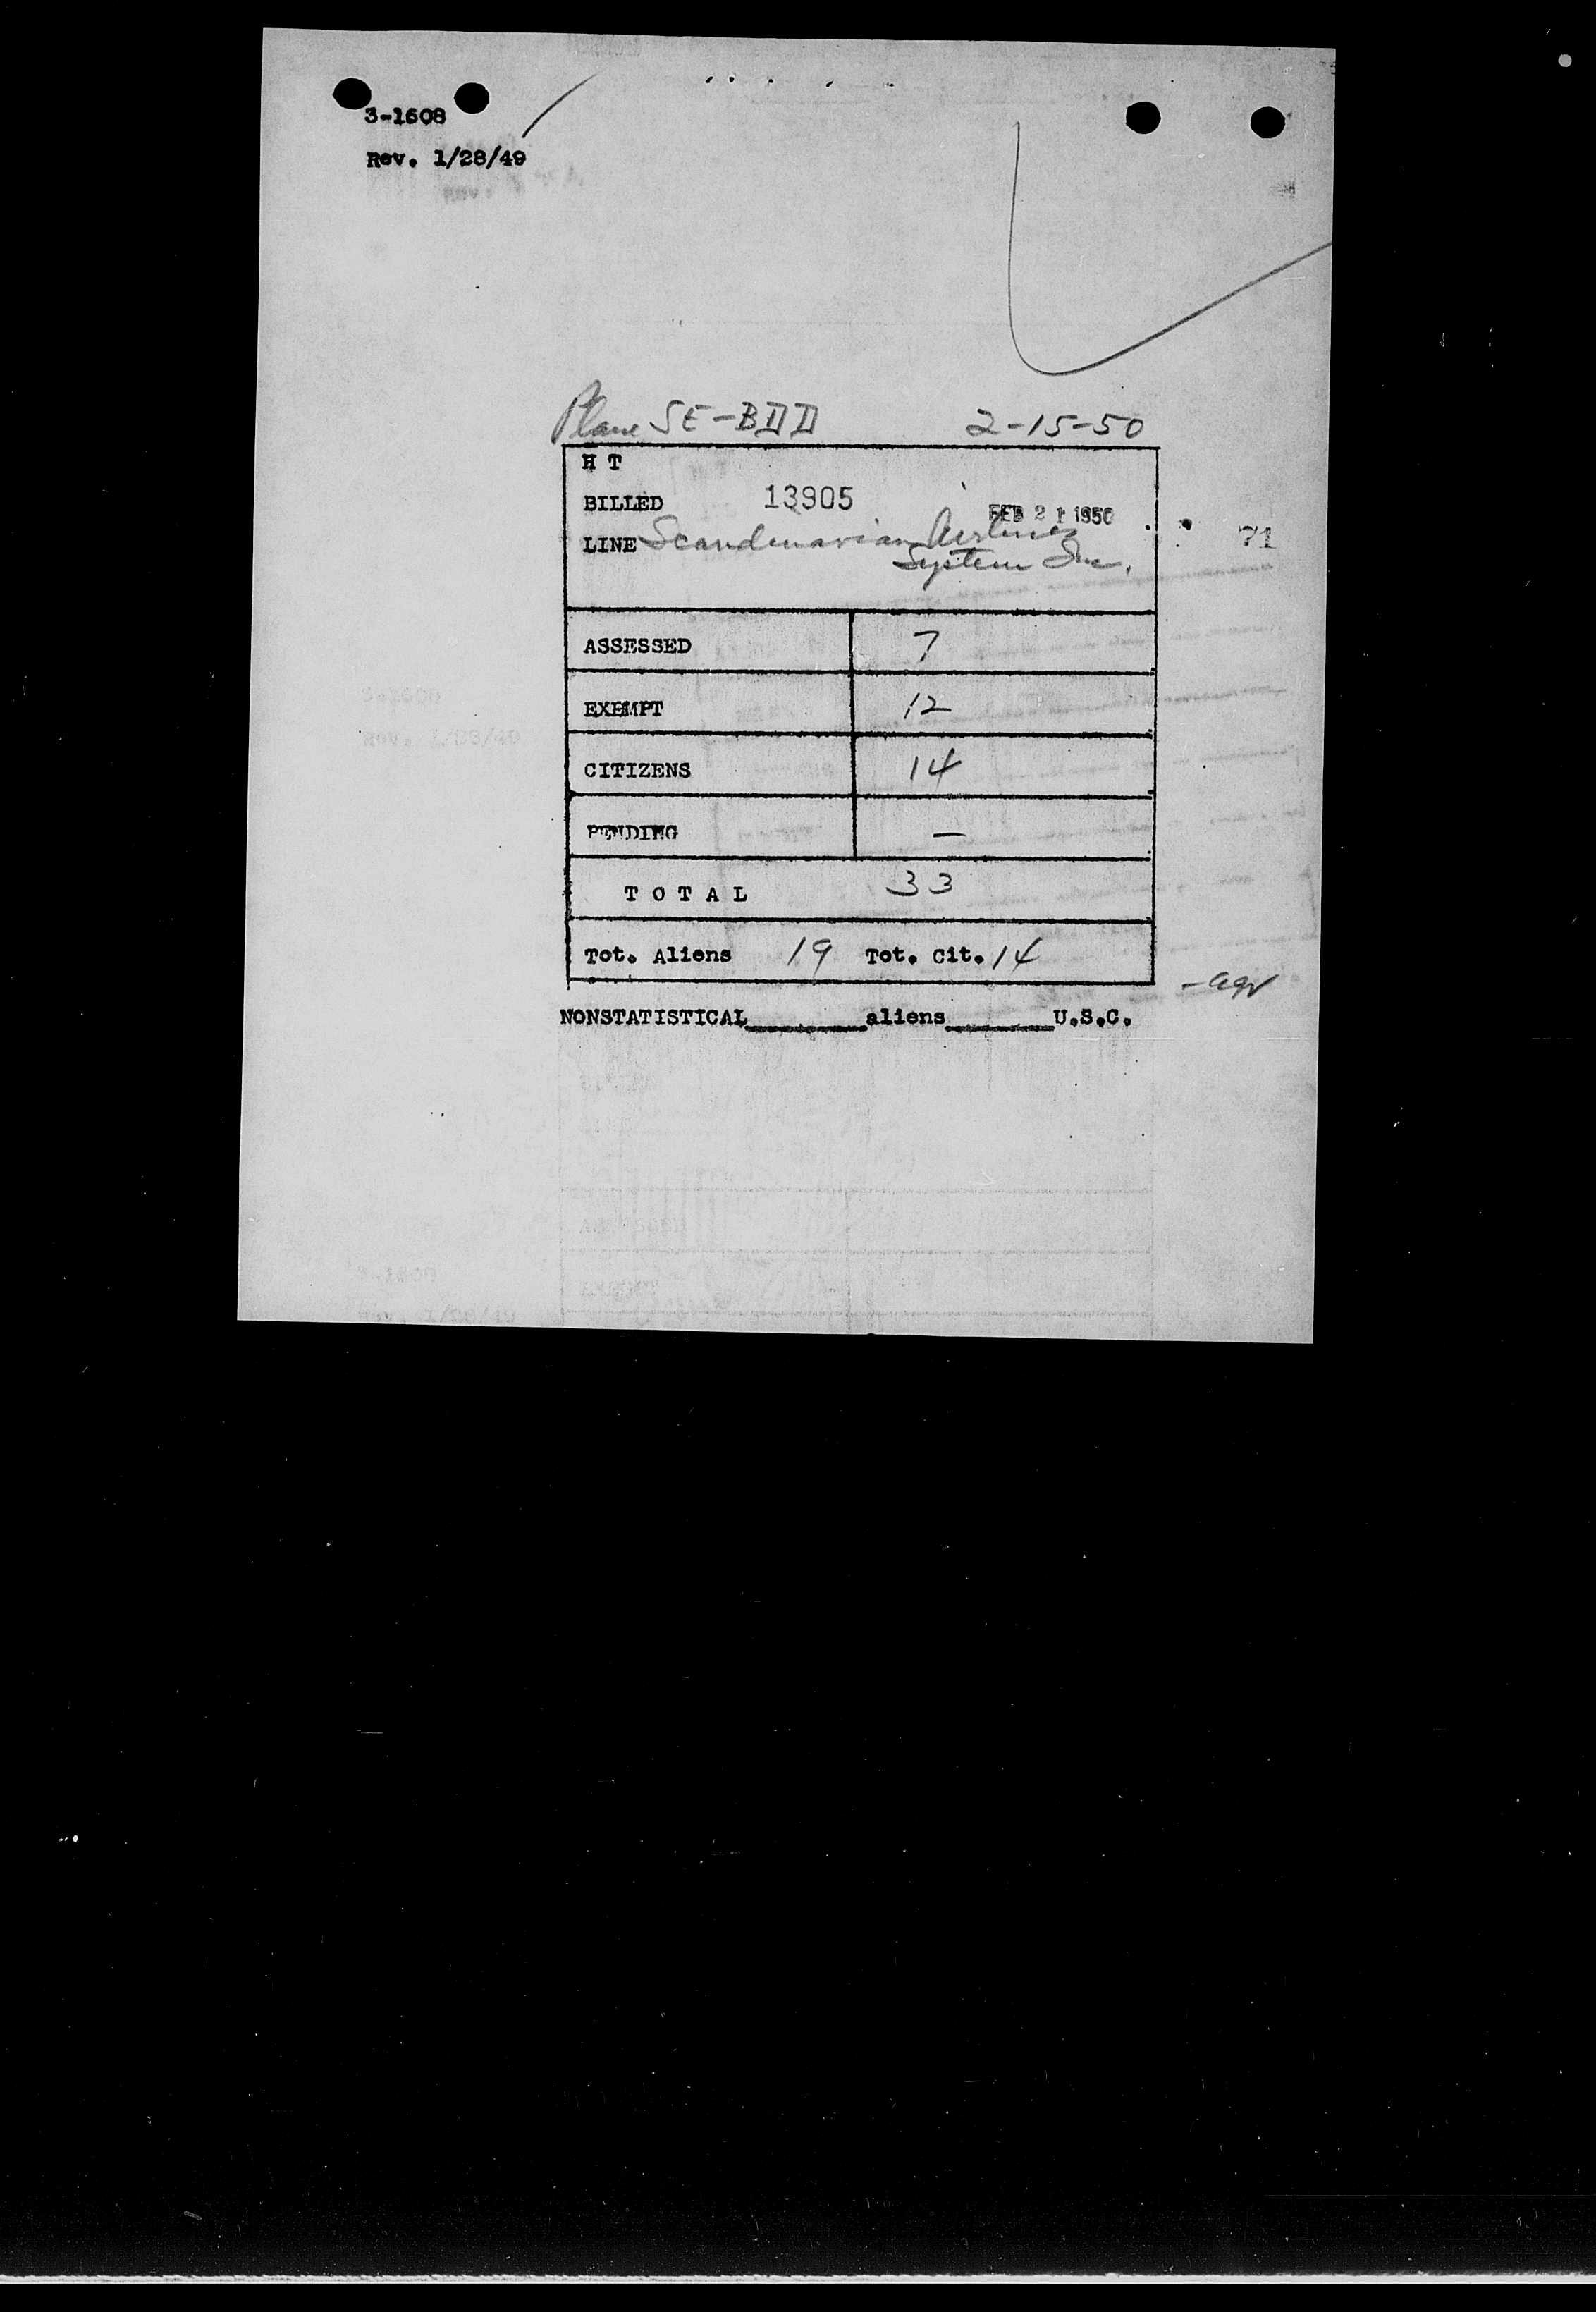 3-1608
Rev. 1/28/49
Plane SE-BDD 2-15-50
H T
BILLED 13905 FEB 21 1950
LINE Scandinavian Airlines
System Inc.
71
ASSESSED 7
EXEMPT 12
CITIZENS 14
PENDING —
T O T A L 33
Tot. Aliens 19 Tot. Cit. 14
NONSTATISTICAL________aliens________U.S.C.